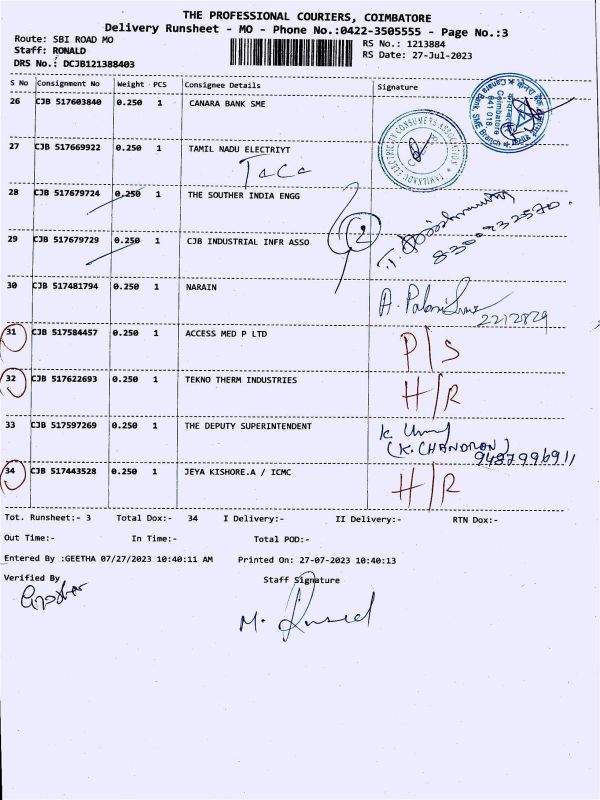 THE PROFESSIONAL COURIERS, COIMBATORE
Delivery Runsheet - MO - Phone No.:0422-3505555 - Page No.:3
Route: SBI ROAD MO
Staff: RONALD
DRS No.: DCJB121388403
RS No.: 1213884
RS Date: 27-Jul-2023
S No Consignment No Weight PCS Consignee Details Signature
26 CJB 517603840 0.250 1 CANARA BANK SME
Canara Bank, SME Branch
Coimbatore
641 018
27 CJB 517669922 0.250 1 TAMIL NADU ELECTRIYT
TACA
ELECTRICITY CONSUMERS ASSOCIATION
28 CJB 517679724 0.250 1 THE SOUTHER INDIA ENGG
2
29 CJB 517679729 0.250 1 CJB INDUSTRIAL INFR ASSO
30 CJB 517481794 0.250 1 NARAIN
2212829
31 CJB 517584457 0.250 1 ACCESS MED P LTD P/S
32 CJB 517622693 0.250 1 TEKNO THERM INDUSTRIES H/R
33 CJB 517597269 0.250 1 THE DEPUTY SUPERINTENDENT
(K.CHANDRON)
9487996911
34 CJB 517443528 0.250 1 JEYA KISHORE.A / ICMC H/R
Tot. Runsheet:- 3 Total Dox:- 34 I Delivery:- II Delivery:- RTN Dox:-
Out Time:- In Time:- Total POD:-
Entered By :GEETHA 07/27/2023 10:40:11 AM Printed On: 27-07-2023 10:40:13
Verified By Staff Signature